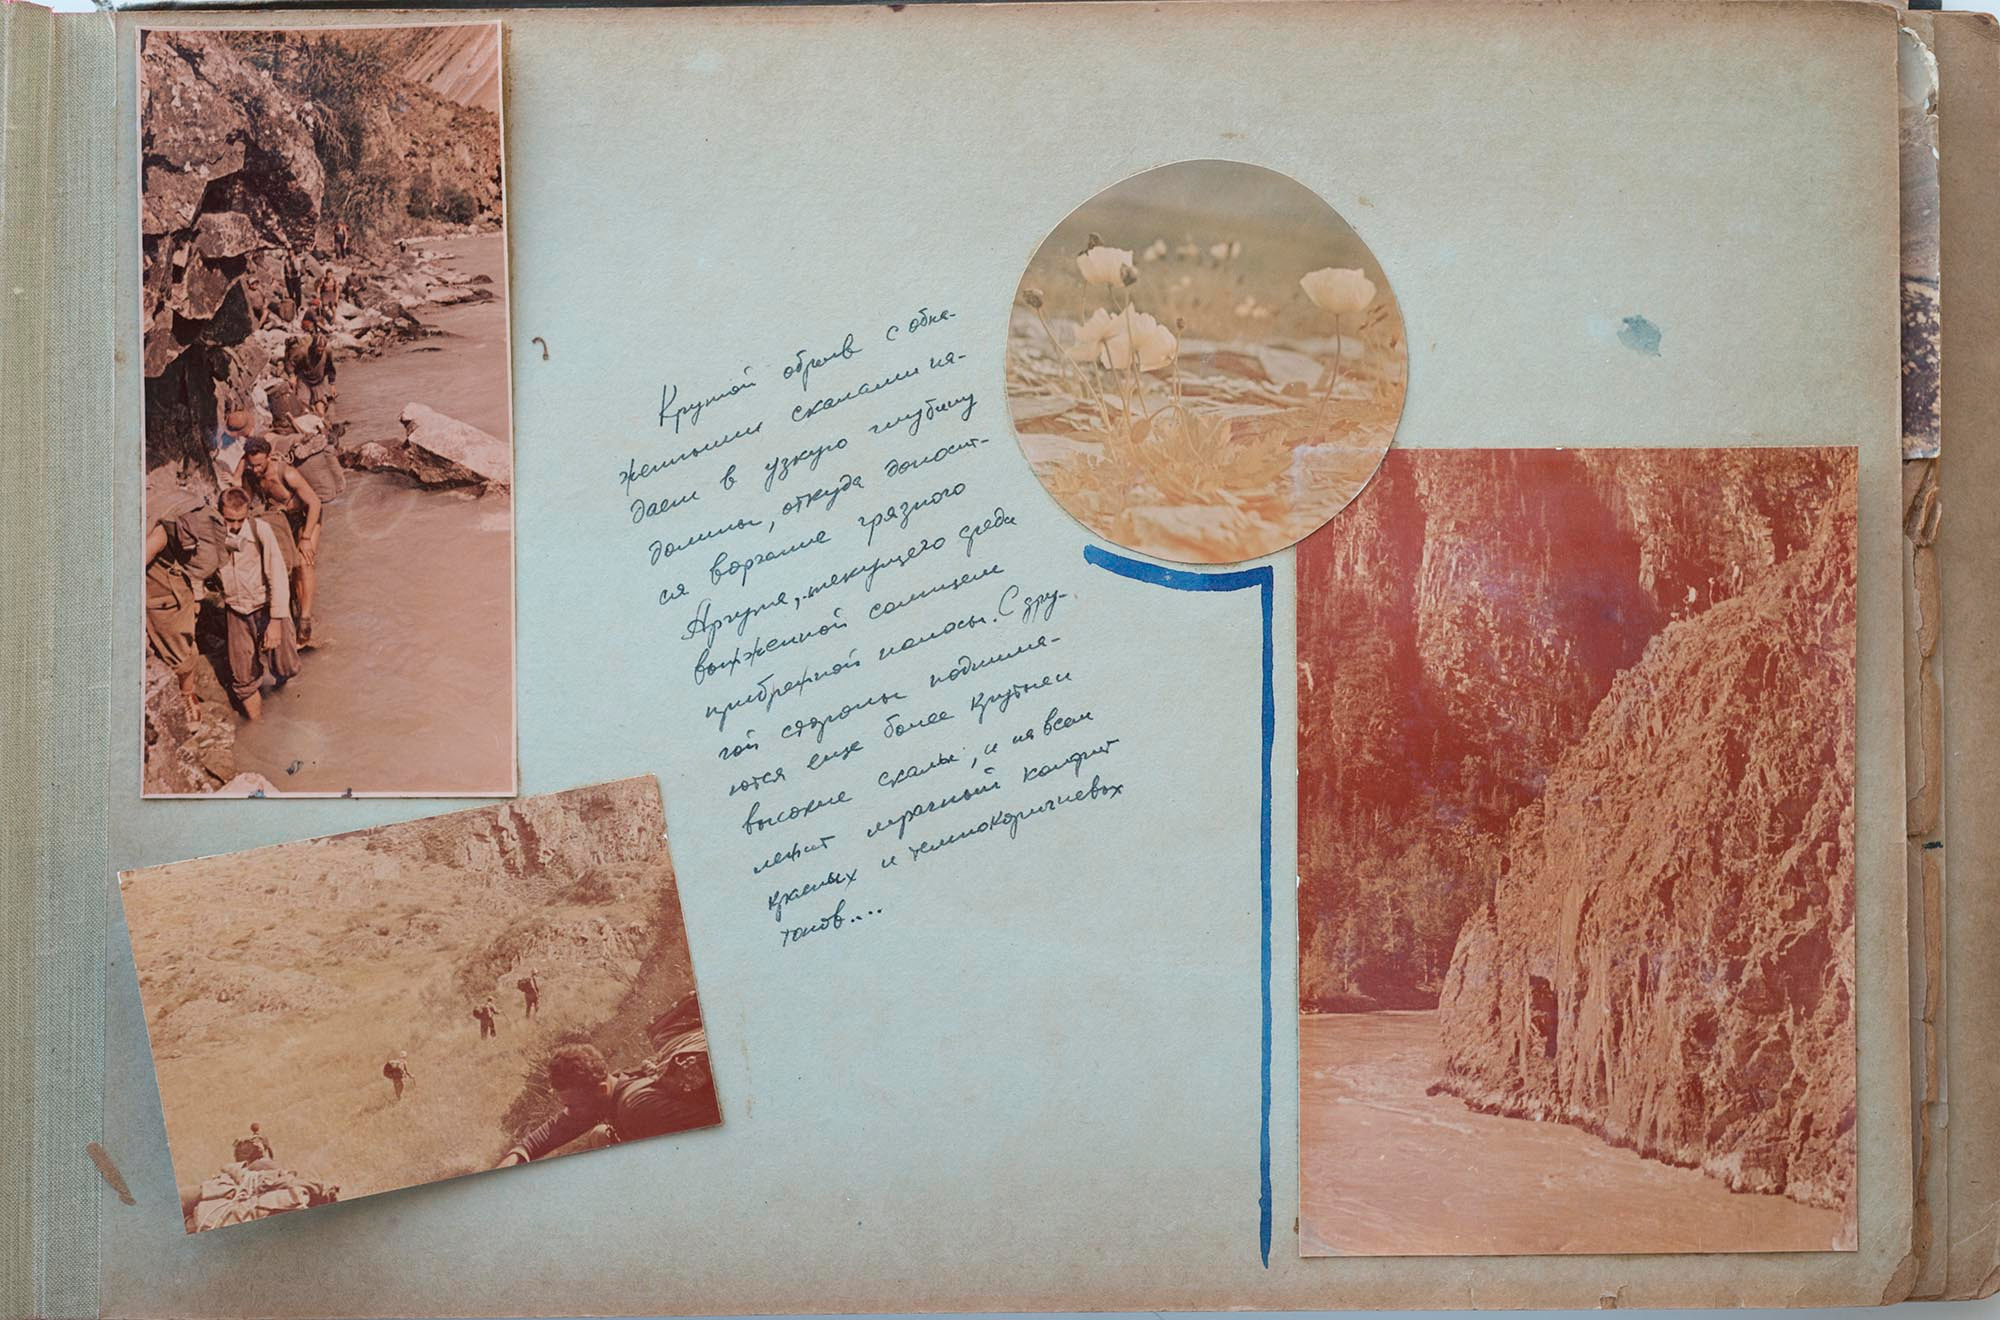 Крутой обрыв с обна-
женными скалами па-
дает в узкую глубину
долины, откуда доносит-
ся ворчание грязного
Аргута, текущего среди
выжженной солнцем
прибрежной полосы. С дру-
гой стороны поднима-
ются еще более крутые и
высокие скалы, и на всем
лежит мрачный колорит
красных и темнокоричневых
тонов....